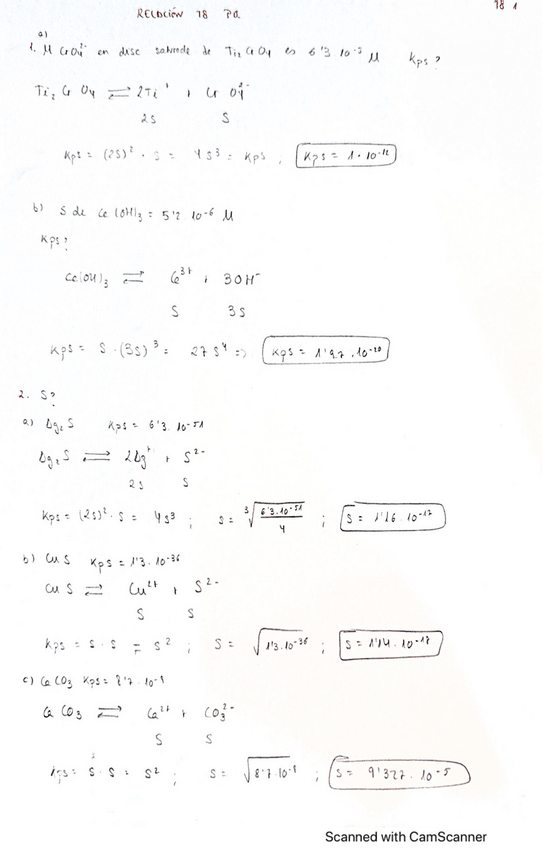 RELACIÓN 78 PQ.
78 1
a)
1. M CrO4²⁻ en disc saturada de Ti₂CrO4 es 6'3·10⁻⁵ M Kps?
Ti₂CrO4 ⇌ 2Ti⁺ + CrO4²⁻
2S S
Kps = (2S)² · S = 4S³ = Kps ; Kps = 1·10⁻¹²
b) S de Ce(OH)₃ = 5'2·10⁻⁶ M
Kps?
Ce(OH)₃ ⇌ Ce³⁺ + 3OH⁻
S 3S
Kps = S·(3S)³ = 27S⁴ => Kps = 1'97·10⁻²⁰
2. S?
a) Ag₂S Kps = 6'3·10⁻⁵¹
Ag₂S ⇌ 2Ag⁺ + S²⁻
2S S
Kps = (2S)² · S = 4S³ ; S = ³√(6'3·10⁻⁵¹/4) ; S = 1'16·10⁻¹⁷
b) CuS Kps = 1'3·10⁻³⁶
CuS ⇌ Cu²⁺ + S²⁻
S S
Kps = S·S = S² ; S = √1'3·10⁻³⁶ ; S = 1'14·10⁻¹⁸
c) CaCO₃ Kps = 8'7·10⁻⁹
CaCO₃ ⇌ Ca²⁺ + CO₃²⁻
S S
Kps = S·S = S² ; S = √8'7·10⁻⁹ ; S = 9'327·10⁻⁵
Scanned with CamScanner